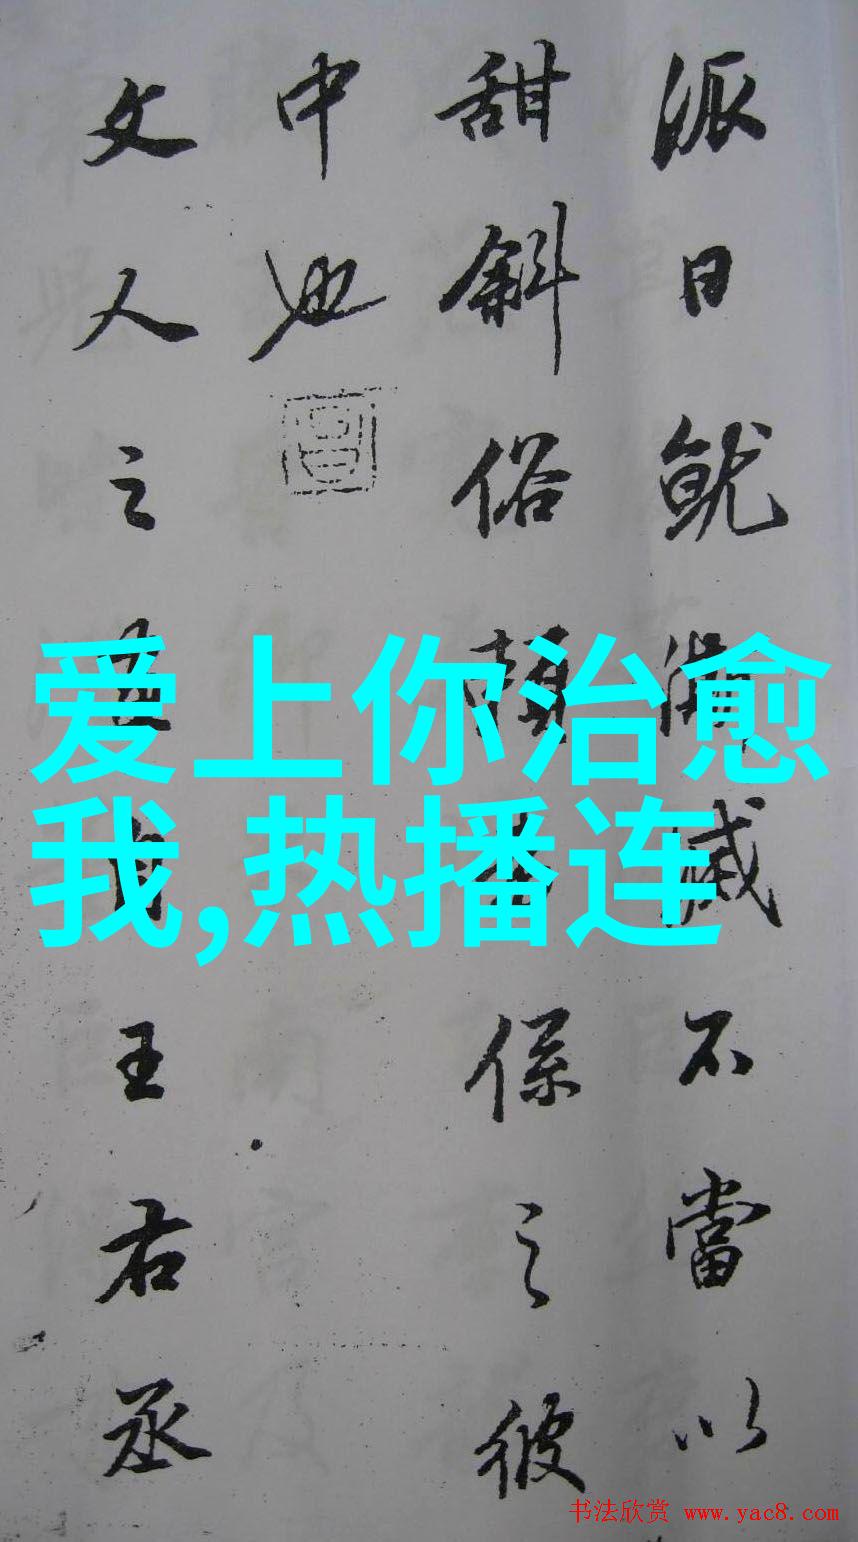 派日就澌滅不當以
甜斜俗賴者係之彼
中也
文人之畫自王右丞
爱上你治愈
我,热播连
书法欣赏 www.yac8.com